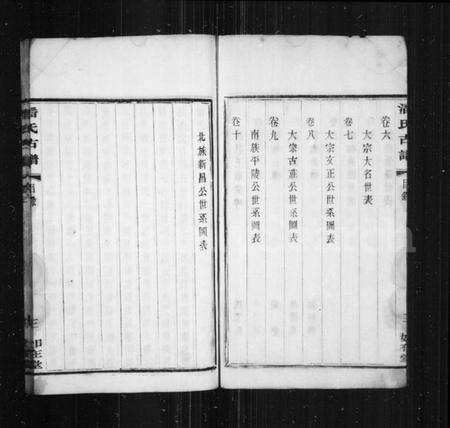 潘氏古譜
目錄
卷六
大宗大名世表
卷七
大宗文正公世系圖表
卷八
大宗古莊公世系圖表
卷九
南族平陵公世系圖表
卷十
北族新昌公世系圖表
潘氏古譜
目錄
如在堂